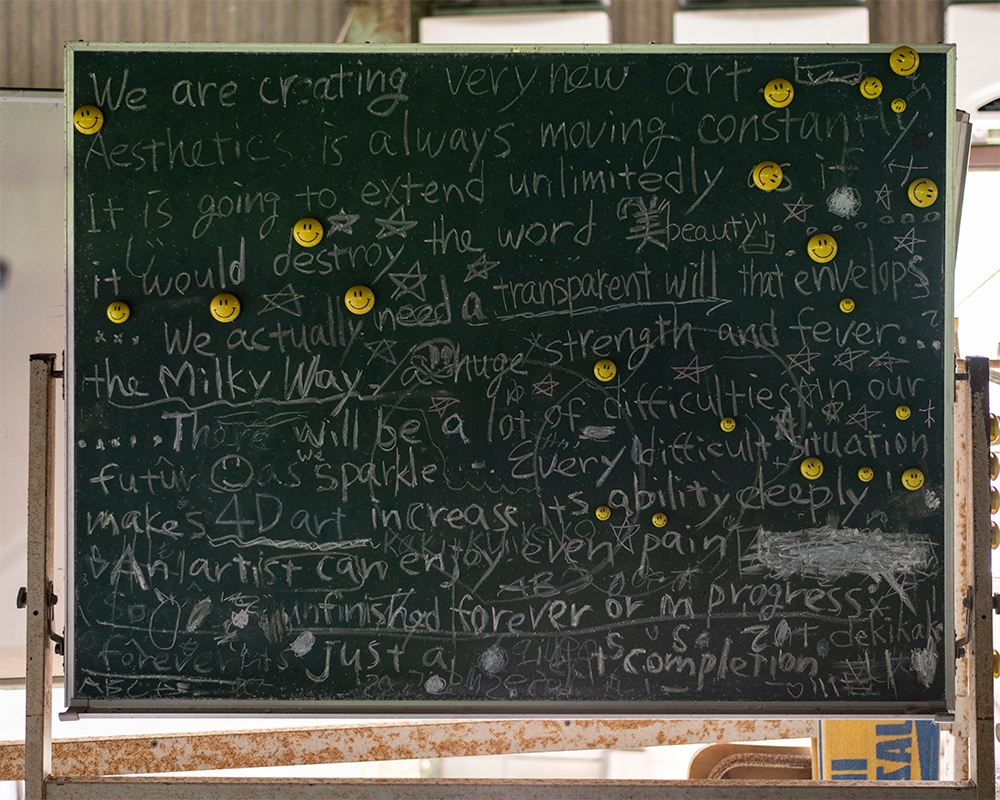 We are creating very new art
Aesthetics is always moving constantly
It is going to extend unlimitedly as if
it would destroy the word 美 beauty
We actually need a transparent will that envelops
the Milky Way - a huge strength and fever
There will be a lot of difficulties in our
futur as we sparkle Every difficult situation
makes 4D art increase its ability deeply
An artist can enjoy even pain
unfinished forever or in progress
forever just a completion
dekikake
ABC